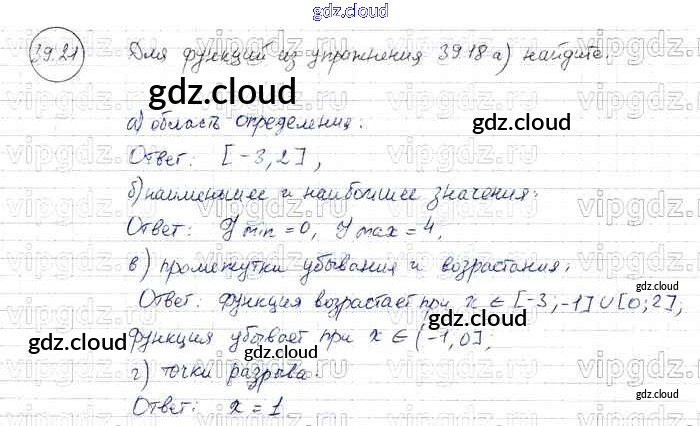 gdz.cloud
39.21 Для функций из упражнения 39.18 а) найдите:
gdz.cloud
gdz.cloud
а) область определения:
Ответ: [-3, 2],
б) наименьшее и наибольшее значения:
Ответ: y min = 0, y max = 4,
в) промежутки убывания и возрастания:
gdz.cloud
Ответ: функция возрастает при x ∈ [-3; -1] ∪ [0; 2],
функция убывает при x ∈ (-1, 0];
gdz.cloud
gdz.cloud
г) точки разрыва:
gdz.cloud
Ответ: x = 1